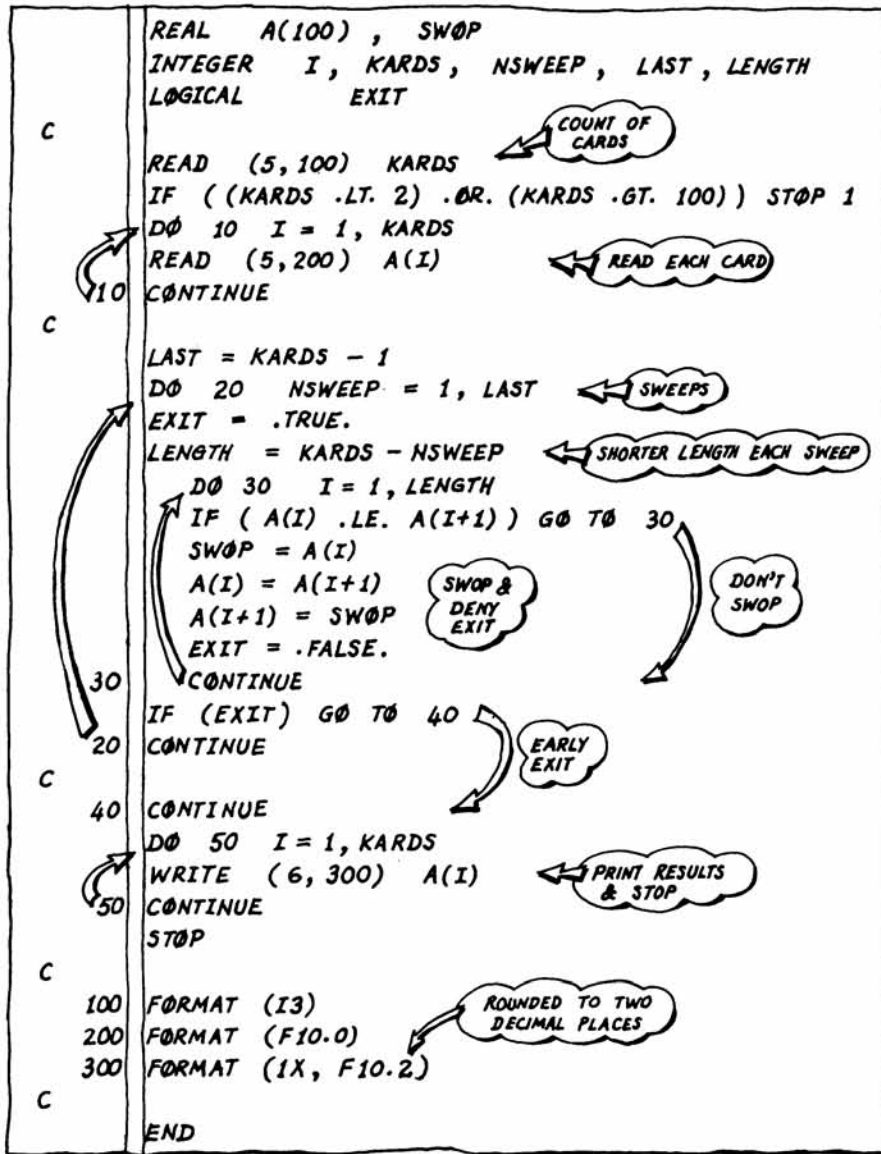 REAL A(100) , SWØP
INTEGER I, KARDS, NSWEEP, LAST, LENGTH
LØGICAL EXIT
C
COUNT OF
CARDS
READ (5,100) KARDS
IF ((KARDS .LT. 2) .ØR. (KARDS .GT. 100)) STØP 1
DØ 10 I = 1, KARDS
READ (5,200) A(I)
READ EACH CARD
10 CØNTINUE
C
LAST = KARDS - 1
DØ 20 NSWEEP = 1, LAST
SWEEPS
EXIT = .TRUE.
LENGTH = KARDS - NSWEEP
SHORTER LENGTH EACH SWEEP
DØ 30 I = 1, LENGTH
IF ( A(I) .LE. A(I+1) ) GØ TØ 30
SWØP = A(I)
A(I) = A(I+1)
A(I+1) = SWØP
EXIT = .FALSE.
SWOP &
DENY
EXIT
DON'T
SWOP
30 CØNTINUE
IF (EXIT) GØ TØ 40
20 CØNTINUE
EARLY
EXIT
C
40 CØNTINUE
DØ 50 I = 1, KARDS
WRITE (6,300) A(I)
PRINT RESULTS
& STOP
50 CØNTINUE
STØP
C
100 FØRMAT (I3)
200 FØRMAT (F10.0)
300 FØRMAT (1X, F10.2)
ROUNDED TO TWO
DECIMAL PLACES
C
END